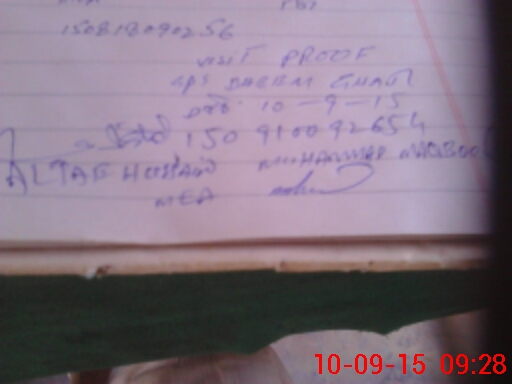 150818090256
VISIT PROOF
GPS DHERM GHATI
10-9-15
150910092654
ALTAF HUSSAIN MUHAMMAD MAQBOOL
MEA
10-09-15 09:28